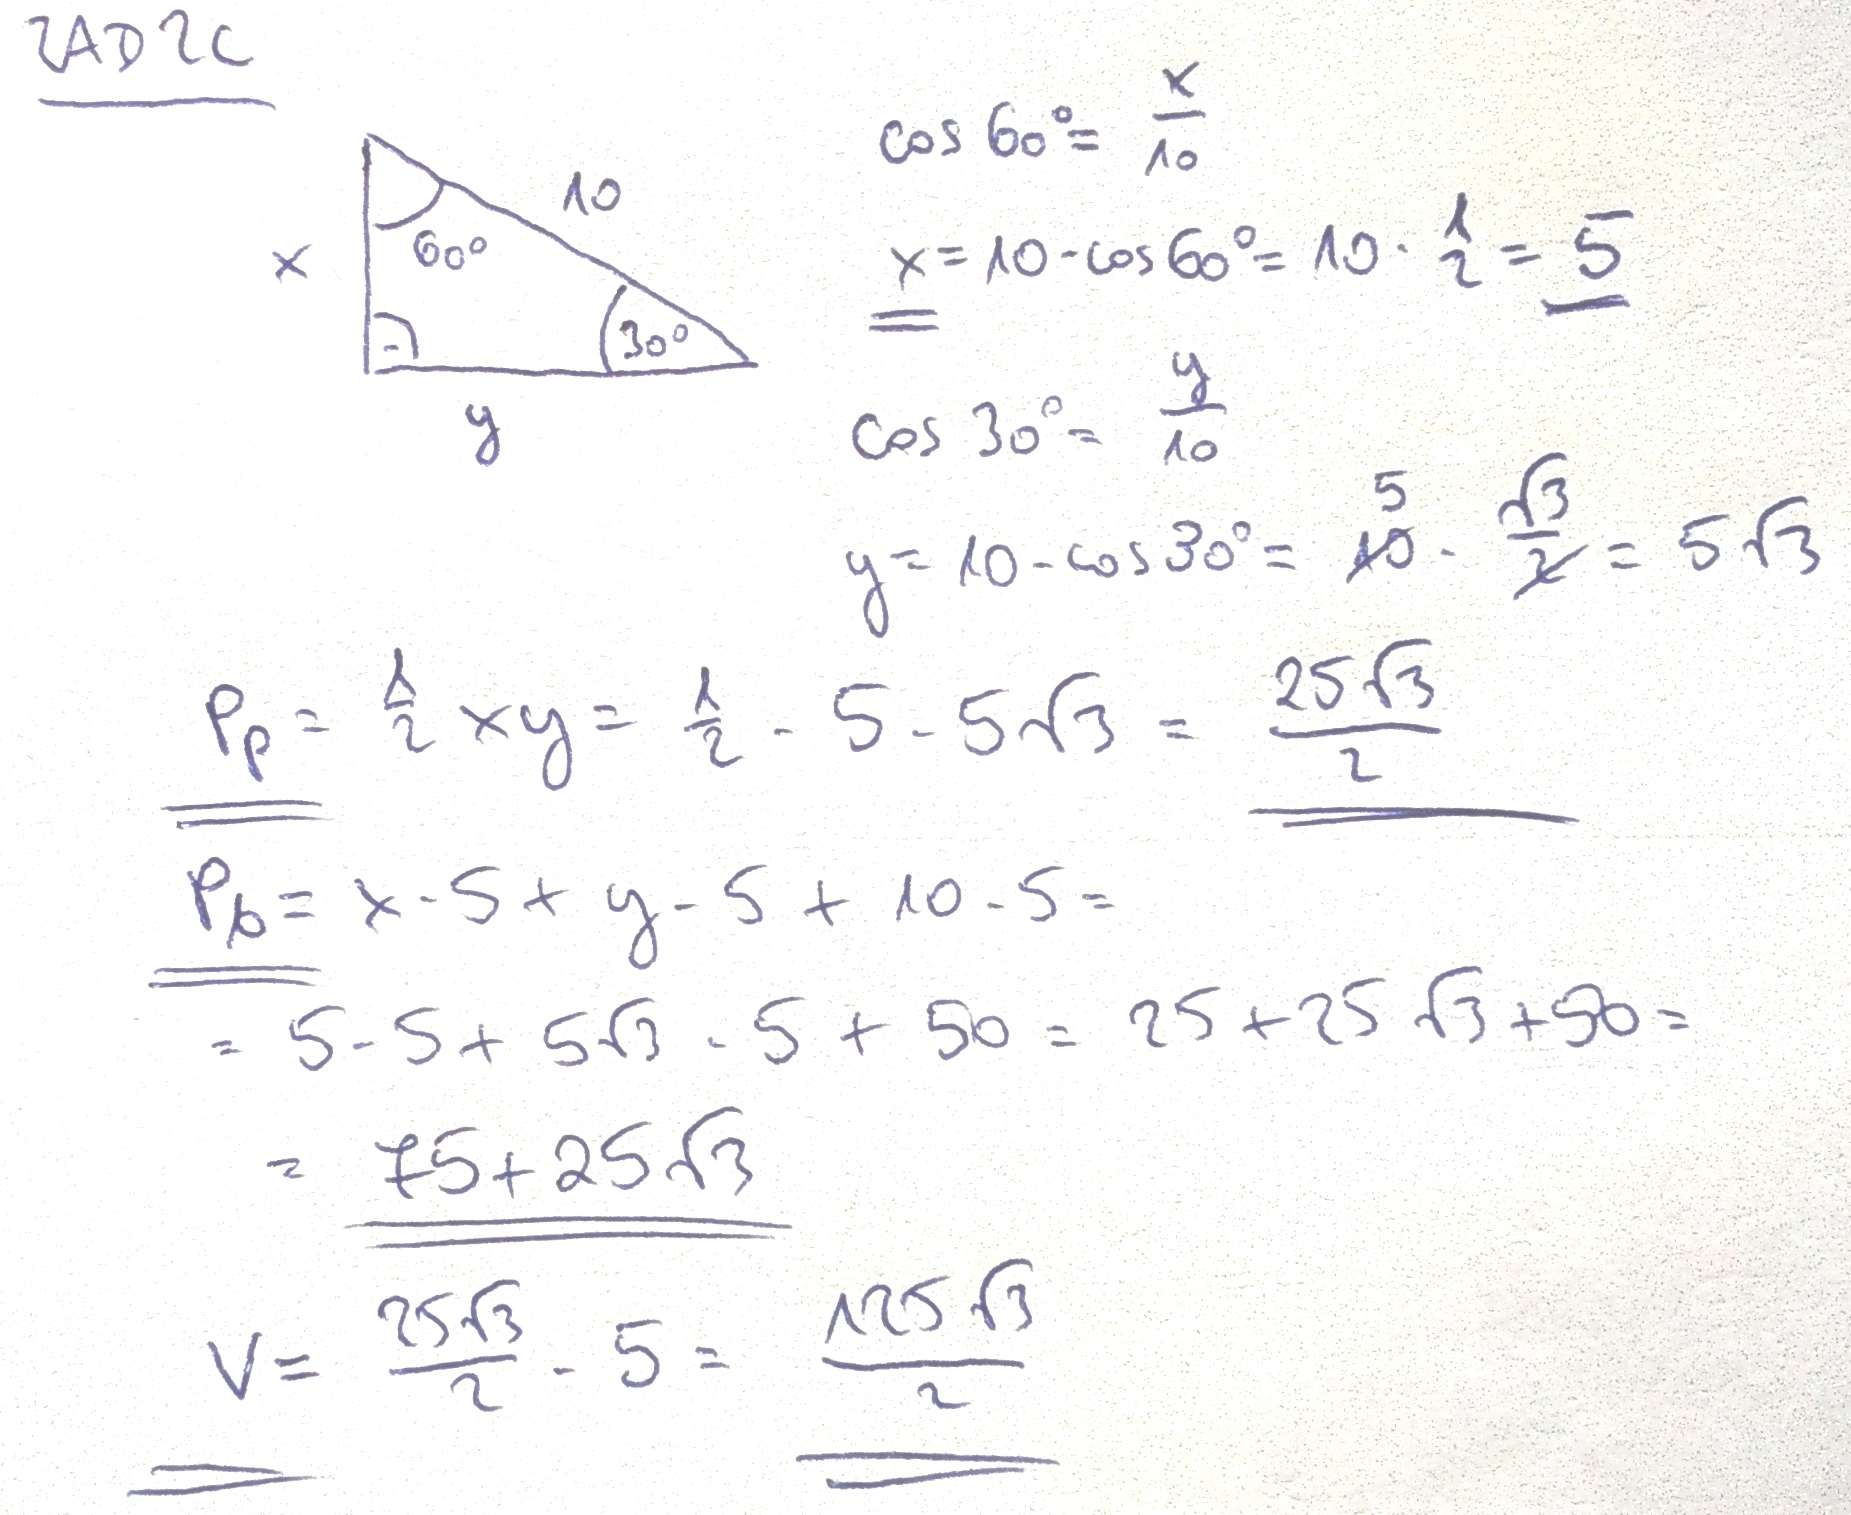 ZAD 2C
cos 60° = x/10
10
60°
x
x = 10 · cos 60° = 10 · 1/2 = 5
30°
y
cos 30° = y/10
y = 10 · cos 30° = 10 5 · √3/2 = 5√3
Pp = 1/2 xy = 1/2 · 5 · 5√3 = 25√3/2
Pb = x · 5 + y · 5 + 10 · 5 =
= 5 · 5 + 5√3 · 5 + 50 = 25 + 25√3 + 50 =
= 75 + 25√3
V = 25√3/2 · 5 = 125√3/2